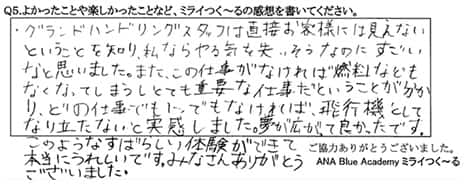 Q5.よかったことや楽しかったことなど、ミライつく～るの感想を書いてください。
・グランドハンドリングスタッフは直接お客様には見えない
ということを知り、私ならやる気を失いそうなのにすごい
なと思いました。また、この仕事がなければ燃料なども
なくなってしまうしとても重要な仕事だということが分か
り、どの仕事でも1つでもなければ、飛行機として
なり立たないと実感しました。夢が広がって良かったです。
このようなすばらしい体験ができて
本当にうれしいです。みなさんありがとう
ございました。
ご協力ありがとうございました。
ANA Blue Academy ミライつく～る